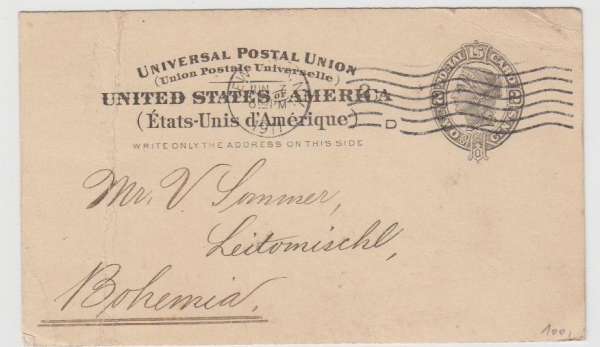 UNIVERSAL POSTAL UNION
(Union Postale Universelle)
UNITED STATES OF AMERICA
(États-Unis d'Amérique)
WRITE ONLY THE ADDRESS ON THIS SIDE
1911
D
POSTAL CARD
Mr. V. Sommer,
Leitomischl,
Bohemia.
100,